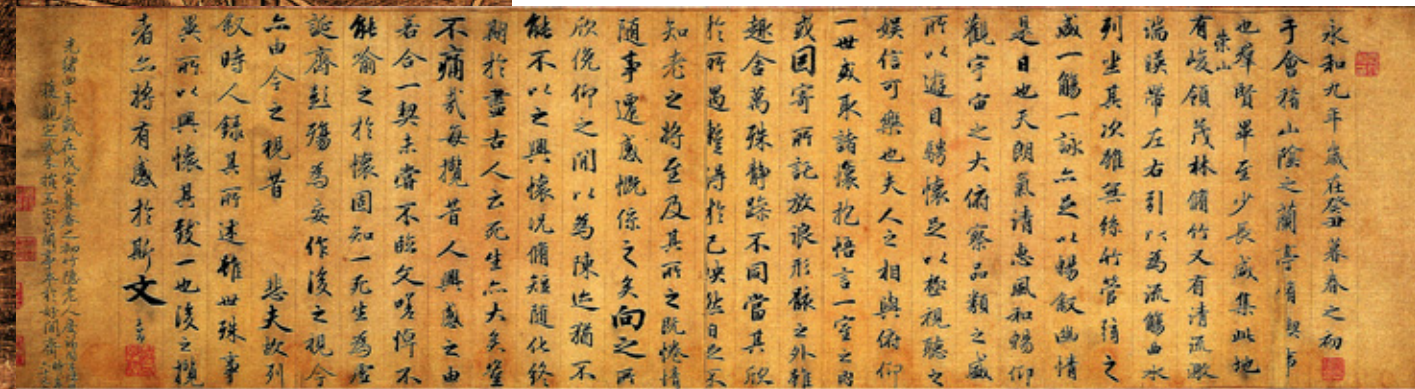 永和九年歲在癸丑暮春之初
于會稽山陰之蘭亭脩禊事
也羣賢畢至少長咸集此地
崇山
有峻領茂林脩竹又有清流激
湍暎帶左右引以為流觴曲水
列坐其次雖無絲竹管弦之
盛一觴一詠亦足以暢敘幽情
是日也天朗氣清惠風和暢仰
觀宇宙之大俯察品類之盛
所以遊目騁懷足以極視聽之
娛信可樂也夫人之相與俯仰
一世或取諸懷抱悟言一室之內
或因寄所託放浪形骸之外雖
趣舍萬殊靜躁不同當其欣
於所遇蹔得於己怏然自足不
知老之將至及其所之既惓情
隨事遷感慨係之矣向之所
欣俛仰之閒以為陳迹猶不
能不以之興懷況脩短隨化終
期於盡古人云死生亦大矣豈
不痛哉每攬昔人興感之由
若合一契未嘗不臨文嗟悼不
能喻之於懷固知一死生為虛
誕齊彭殤為妄作後之視今
亦由今之視昔 悲夫故列
敘時人錄其所述雖世殊事
異所以興懷其致一也後之攬
者亦將有感於斯文
光緒四年歲在戊寅暮春之初竹隱老人